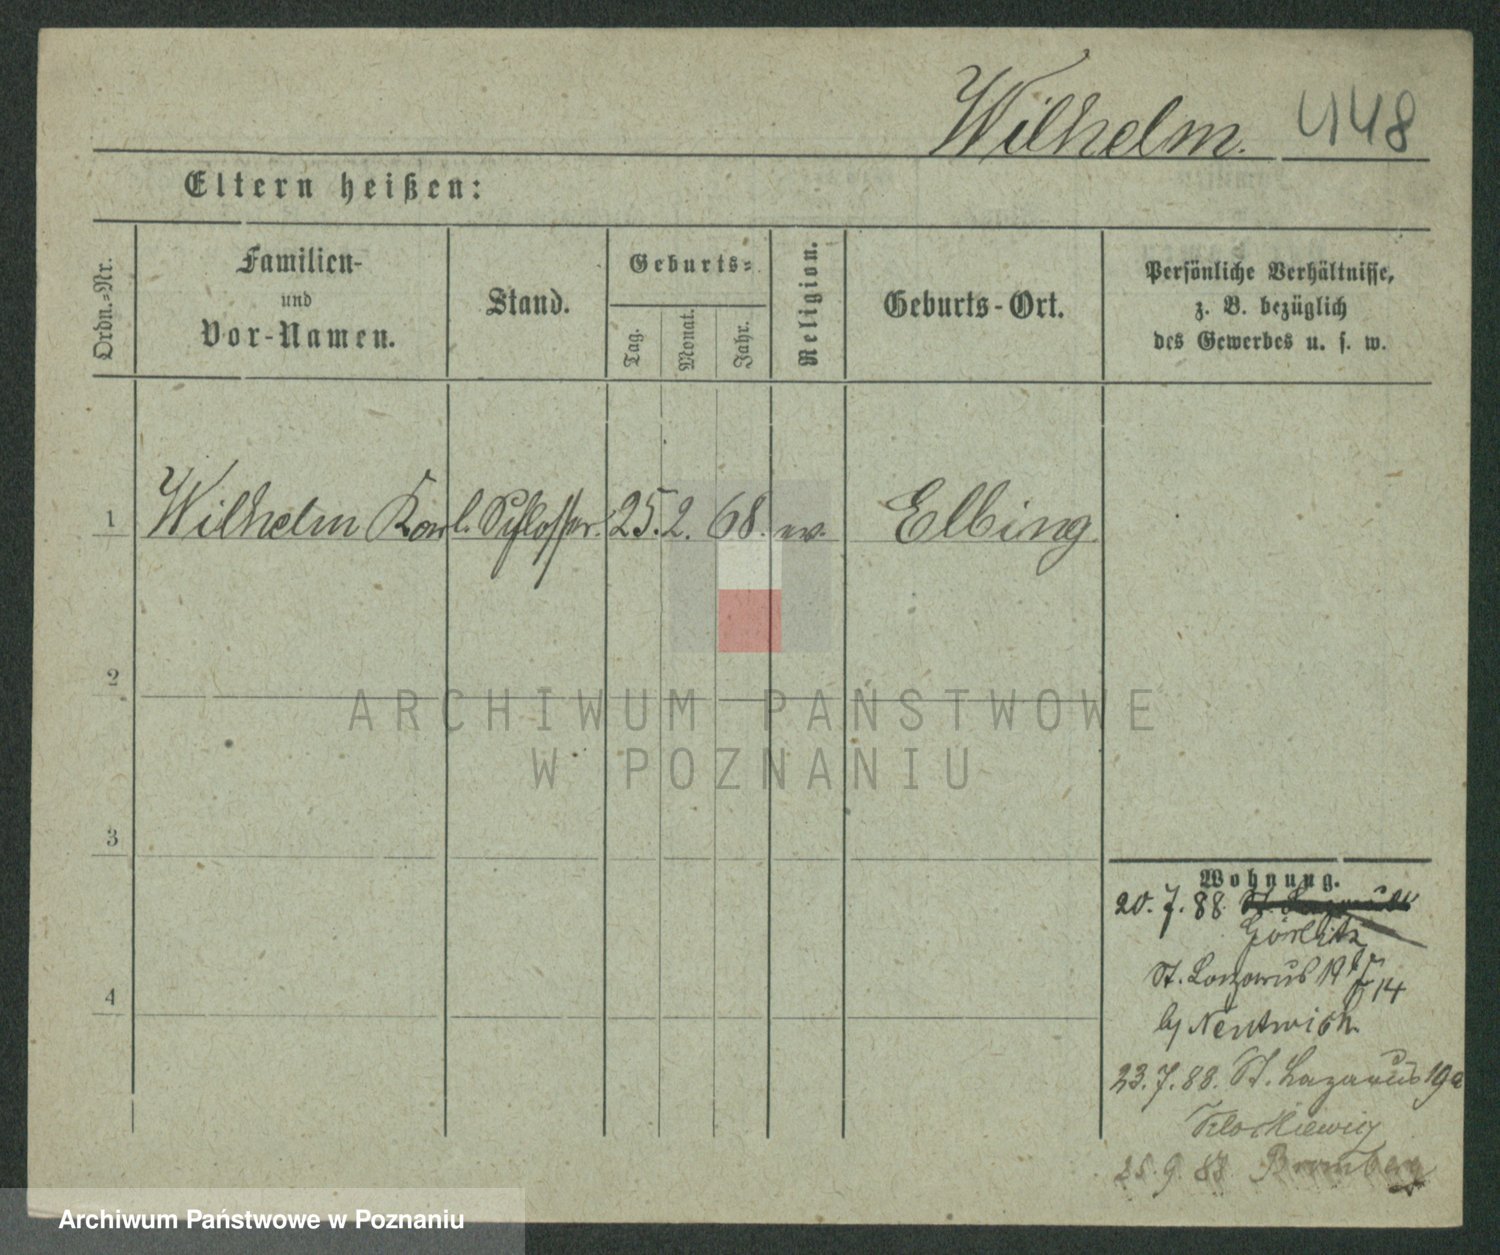 Wilhelm. 448
Eltern heißen:
Ordn.-Nr.
Familien-
und
Vor-Namen.
Stand.
Geburts-
Tag.
Monat.
Jahr.
Religion.
Geburts-Ort.
Persönliche Verhältnisse,
z. B. bezüglich
des Gewerbes u. s. w.
1 Wilhelm Karl. Schlosser. 25. 2. 68. ev. Elbing
2
3
4
ARCHIWUM PAŃSTWOWE
W POZNANIU
Wohnung.
20. 7. 88
Görlitz
St. Lazarus 14
b/
23. 7. 88. St. Lazarus 19a
25. 9. 88 Bromberg
Archiwum Państwowe w Poznaniu